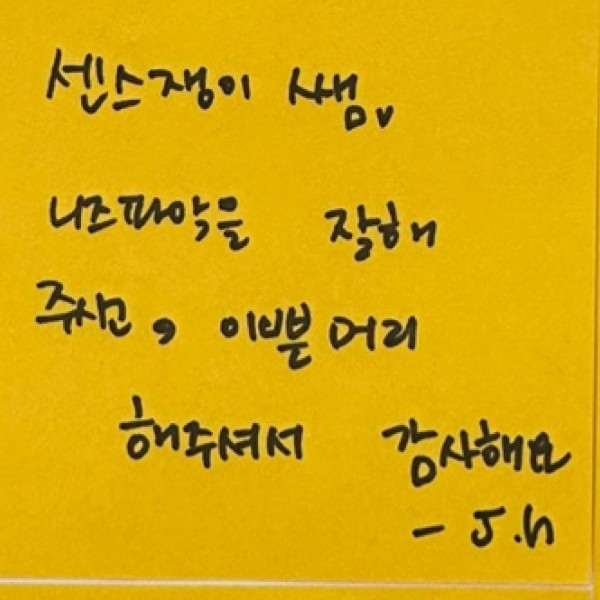 센스쟁이 쌤
니즈파악을 잘해
주시고, 이쁜머리
해주셔서 감사해요
- J.h